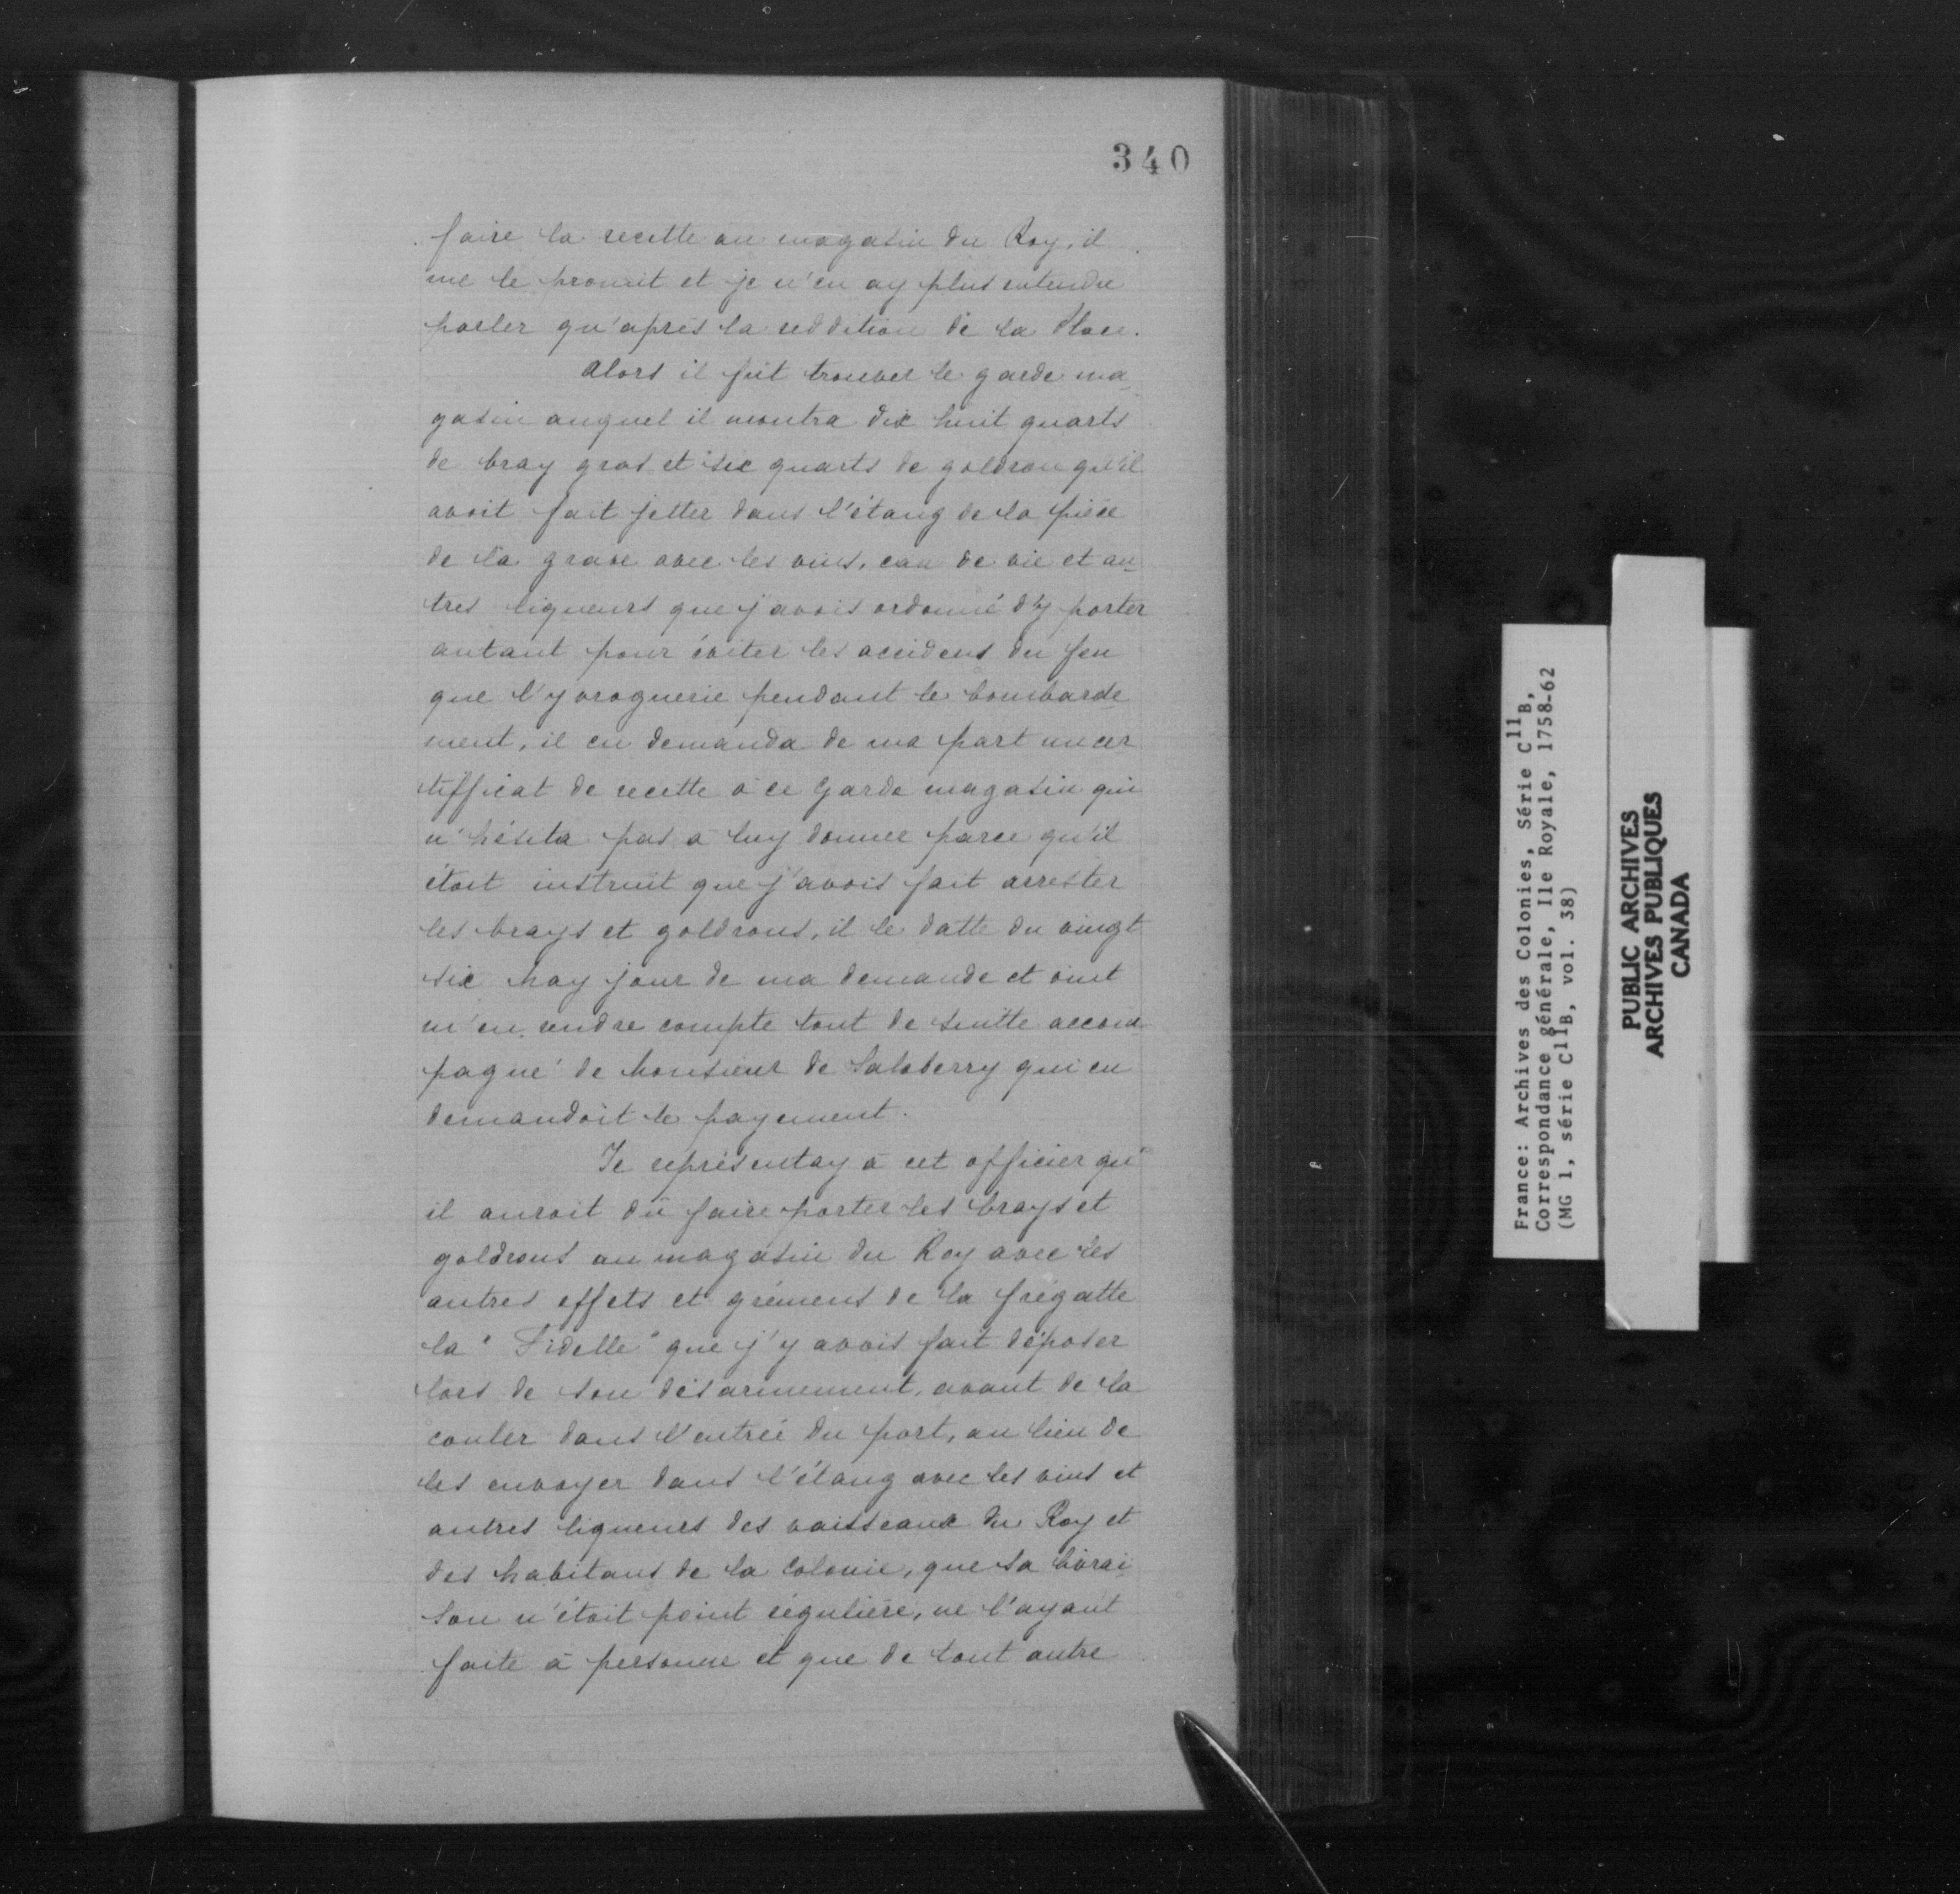 340
faire la recette au magasin du Roy, il
me le promit et je n'en ay plus entendre
parler qu'après la reddition de la place.
Alors il fut trouver le garde ma
gasin auquel il montra dix huit quarts
de bray gras et six quarts de goldron qu'il
avoit fait jetter dans l'étang de la pièce
de la grave avec les vins, eau de vie et au
tres liqueurs que j'avois ordonné d'y porter
autant pour éviter les accidens du feu
que l'yvroguerie pendant le bombarde
ment, il en demanda de ma part un cer
tifficat de recette à ce garde magasin qui
n'hésita pas à luy donner parce qu'il
étoit instruit que j'avois fait arrester
les brays et goldrons, il le datte du vingt
six may jour de ma demande et vint
m'en rendre compte tout de suitte accom
pagné de Monsieur de Salaberry qui en
demandoit le payement.
Je représentay à cet officier qu'
il auroit dû faire porter les brays et
goldrons au magasin du Roy avec les
autres effets et grémens de la frégatte
la "Fidelle" que j'y avois fait déposer
lors de son désarmement, avant de la
couler dans l'entrée du port, au lieu de
les envoyer dans l'étang avec les vins et
autres liqueurs des vaisseaux du Roy et
des habitans de la Colonie, que sa livrai
son n'étoit point régulière, ne l'ayant
faite à personne et que de tout autre
France: Archives des Colonies, Série C11B,
Correspondance générale, Ile Royale, 1758-62
(MG 1, série C11B, vol. 38)
PUBLIC ARCHIVES
ARCHIVES PUBLIQUES
CANADA